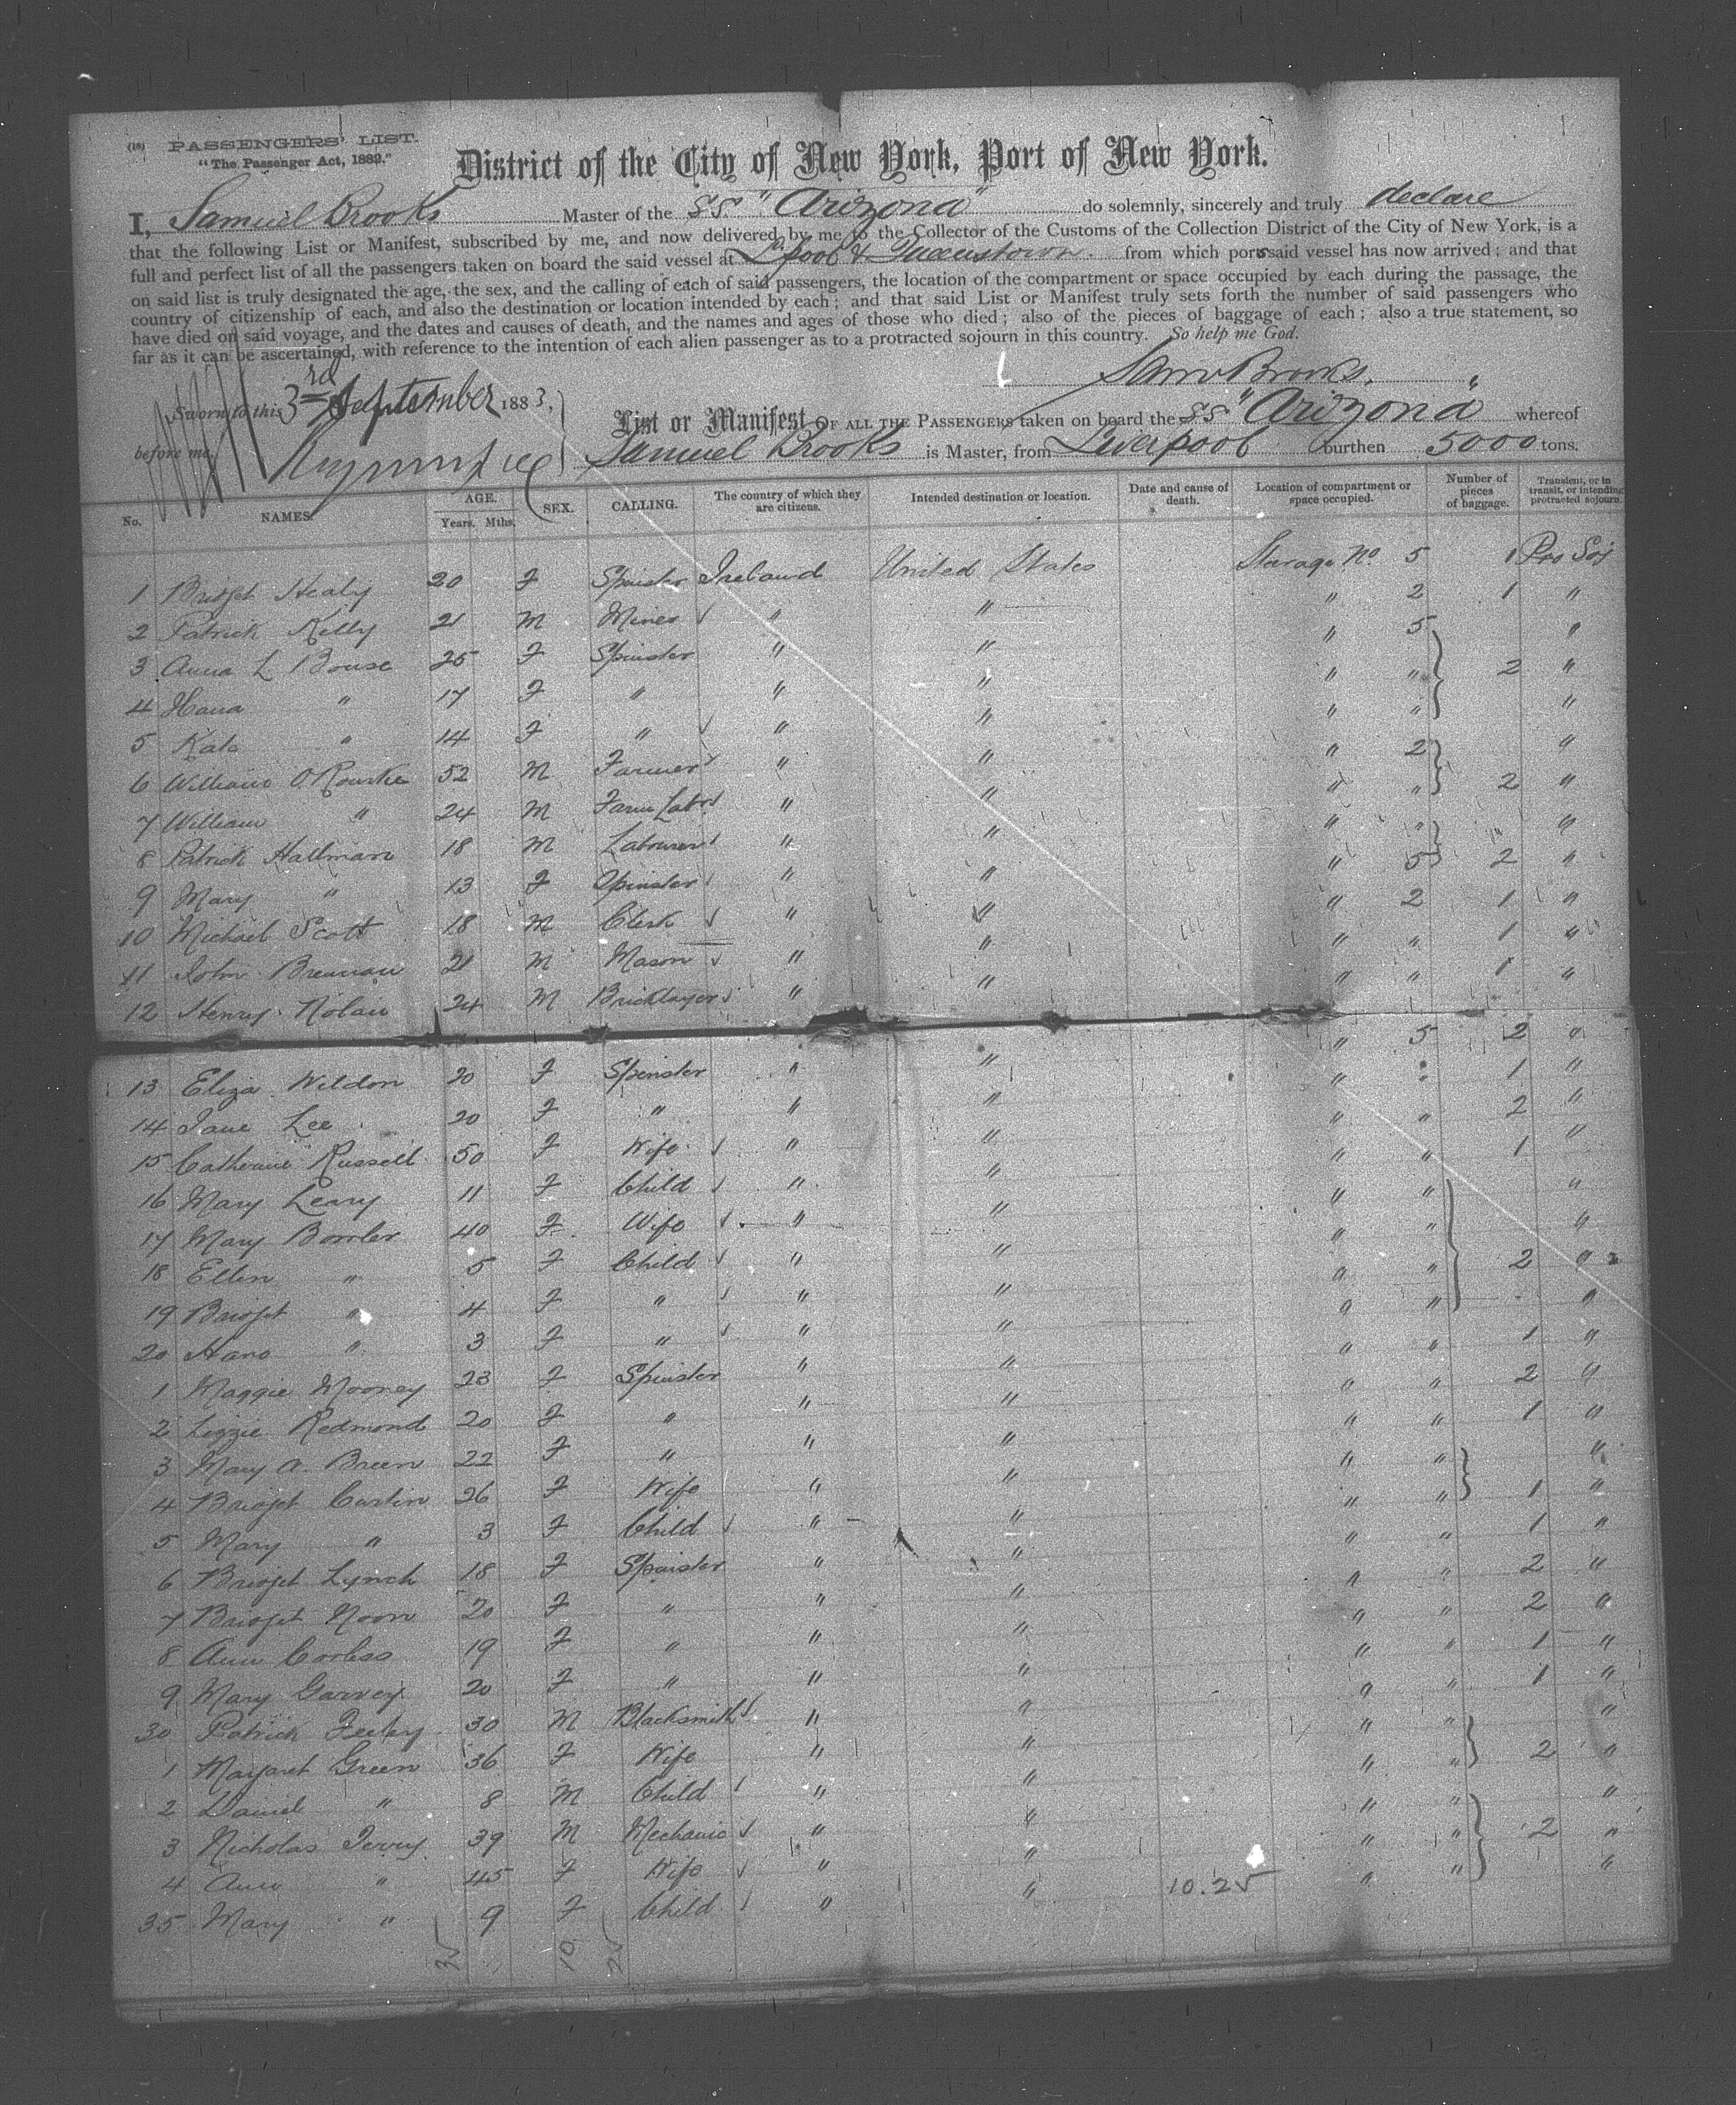 (18) PASSENGERS' LIST.
"The Passenger Act, 1882."
District of the City of New York, Port of New York.
I, Samuel Brooks Master of the S.S. "Arizona" do solemnly, sincerely and truly declare
that the following List or Manifest, subscribed by me, and now delivered by me to the Collector of the Customs of the Collection District of the City of New York, is a
full and perfect list of all the passengers taken on board the said vessel at L'pool & Queenstown. from which ports said vessel has now arrived; and that
on said list is truly designated the age, the sex, and the calling of each of said passengers, the location of the compartment or space occupied by each during the passage, the
country of citizenship of each, and also the destination or location intended by each; and that said List or Manifest truly sets forth the number of said passengers who
have died on said voyage, and the dates and causes of death, and the names and ages of those who died; also of the pieces of baggage of each; also a true statement, so
far as it can be ascertained, with reference to the intention of each alien passenger as to a protracted sojourn in this country. So help me God.
Saml Brooks.
Sworn to this 3rd September 1883,
before me
List or Manifest OF ALL THE PASSENGERS taken on board the S.S. "Arizona" whereof
Samuel Brooks is Master, from Liverpool burthen 5000 tons.
No. NAMES. AGE. Years. Mths. SEX. CALLING. The country of which they are citizens. Intended destination or location. Date and cause of death. Location of compartment or space occupied. Number of pieces of baggage. Transient, or in transit, or intending protracted sojourn.
1 Bridget Healy 20 F Spinster Ireland United States Steerage No. 5 1 Pro Soj
2 Patrick Kelly 21 M Miner " " " 2 1 "
3 Anna L Bouse 25 F Spinster " " " 5 "
4 Hana " 17 F " " " " " 2 "
5 Kate " 14 F " " " " " "
6 William O'Rourke 52 M Farmer " " " 2 "
7 William " 24 M Farm Labr " " " " 2 "
8 Patrick Hallman 18 M Labourer " " " " "
9 Mary " 13 F Spinster " " " 5 2 "
10 Michael Scott 18 M Clerk " " " 2 1 "
11 John Brennan 21 M Mason " " " " 1 "
12 Henry Nolan 24 M Bricklayer " " " " 1 "
13 Eliza Weldon 20 F Spinster " " " 5 2 "
14 Jane Lee 20 F " " " " " 1 "
15 Catherine Russell 50 F Wife " " " " 2 "
16 Mary Leary 11 F Child " " " " 1 "
17 Mary Bowler 40 F Wife " " " " "
18 Ellen " 5 F Child " " " " "
19 Bridget " 4 F " " " " " 2 "
20 Hano " 3 F " " " " " "
1 Maggie Mooney 23 F Spinster " " " " 1 "
2 Lizzie Redmond 20 F " " " " " 2 "
3 Mary A. Breen 22 F " " " " " 1 "
4 Bridget Curtin 26 F Wife " " " " "
5 Mary " 3 F Child " " " " 1 "
6 Bridget Lynch 18 F Spinster " " " " 1 "
7 Bridget Noon 20 F " " " " " 2 "
8 Ann Corless 19 F " " " " " 2 "
9 Mary Garvey 20 F " " " " " 1 "
30 Patrick Feeley 30 M Blacksmith " " " " 1 "
1 Margaret Green 36 F Wife " " " " "
2 Daniel " 8 M Child " " " " 2 "
3 Nicholas Terry 39 M Mechanic " " " " "
4 Ann " 45 F Wife " " " " 2 "
35 Mary " 9 F Child " " 10.25 " " "
35 10 25